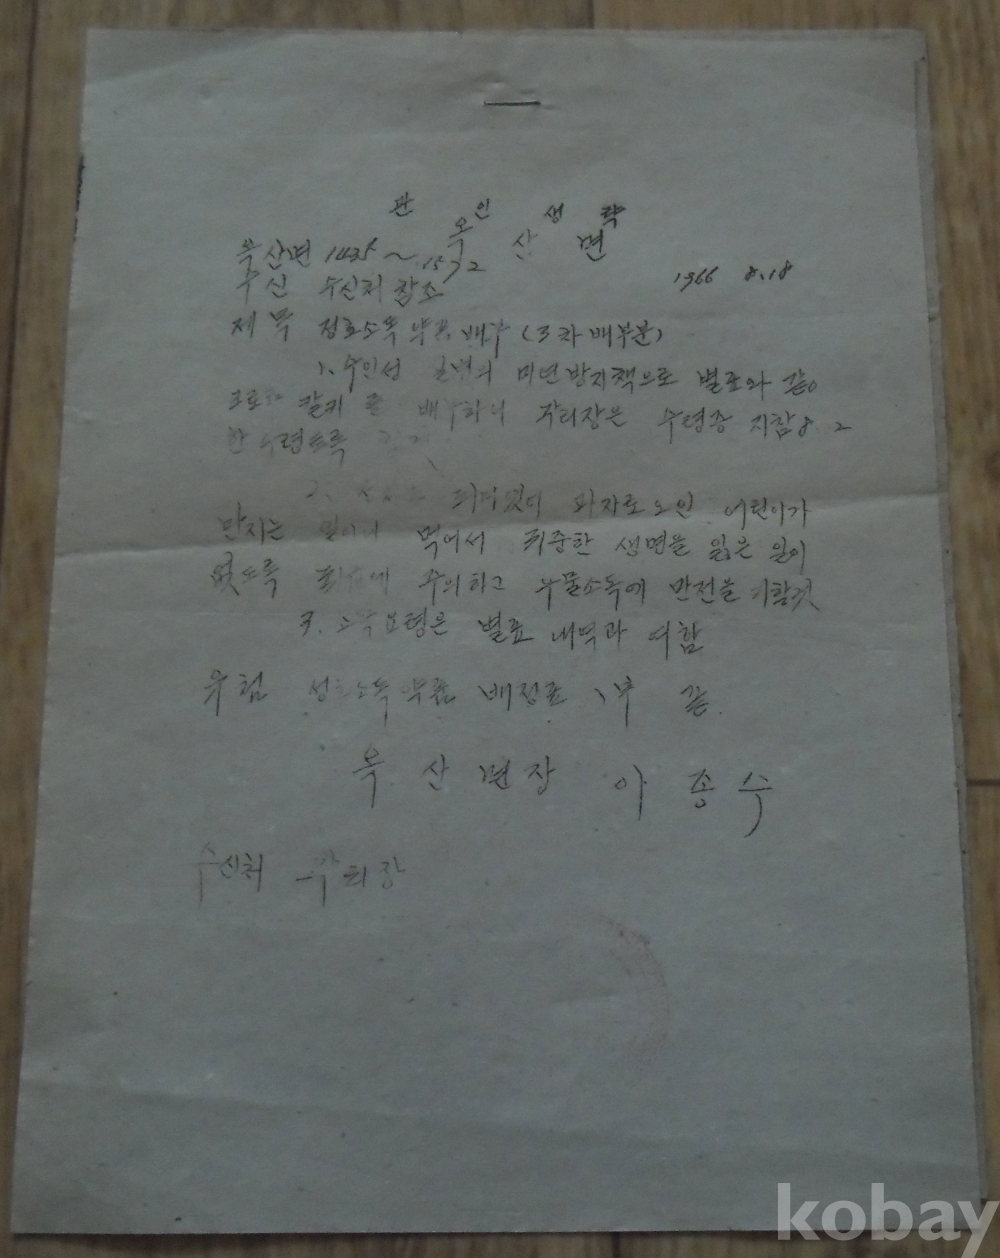 관 인 생 략
옥 산 면
옥산면 1435~1572
1966 8.18
수신 수신처 참조
제 목 정호소독 약품 배부 (3차 배부분)
1. 수인성 미연방지책으로 별표와 같이
칼키 를 배부하니 각리장은 수령증 지참
수령토록
2. 과자로 오인 어린이가
만지는 먹어서 귀중한 생명을 잃은 일이
없도록 주의하고 우물소독에 만전을 기할것
3. 소독요령은 별표 내역과 여함
유첨 정호소독약품 배정표 1부 끝.
옥 산 면 장 이 종 수
수신처 각리장
kobay